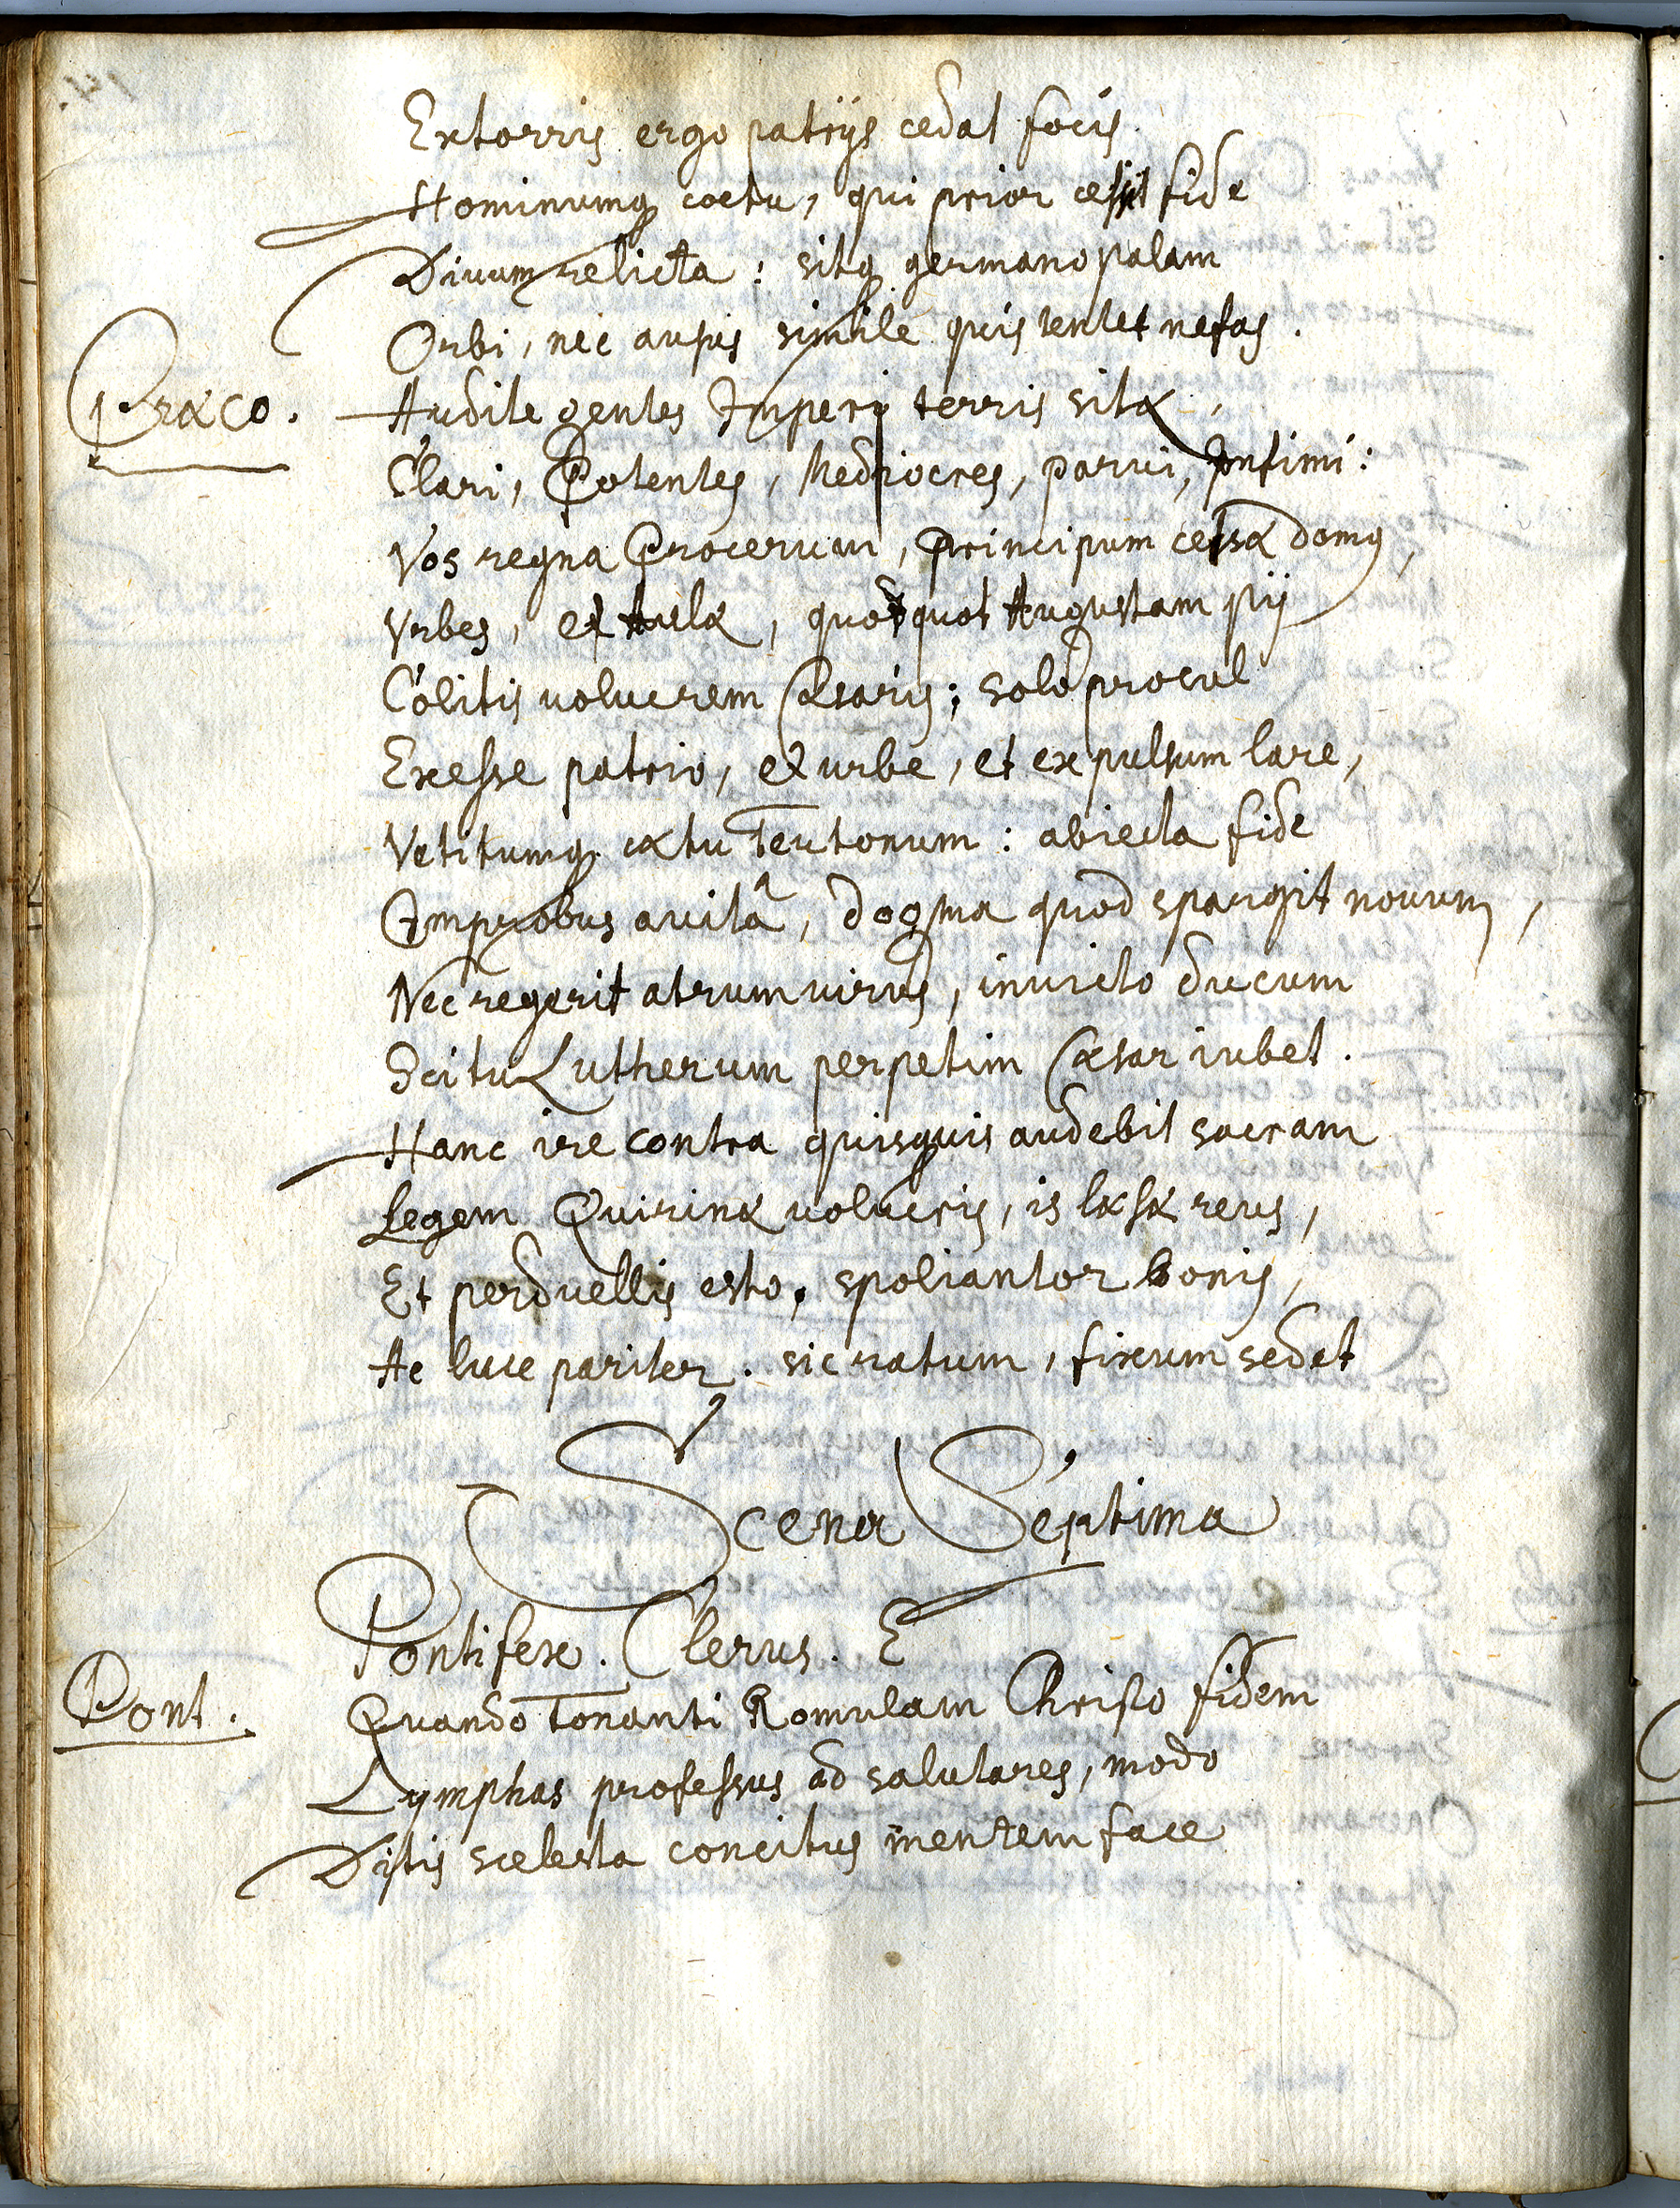 Extorris ergo patrijs cedat focis
Hominumq coetu, qui prior cessit fide
Divum relicta : sitq germano palam
Orbi, nec ausis simile quis tentet nefas.
Præco. Audite gentes Imperij terris sitæ,
Clari, Potentes, Mediocres, parvi, Infimi :
Vos regna Procerum, Principum celsæ domus,
Vrbes, et Aulæ, quotquot Augustam pij
Colitis volucrem Cæsaris ; solo procul
Exesse patrio, et urbe, et expulsum lare,
Vetitumq cætu Teutonum : abiecta fide
Improbus avitâ, dogma quod spargit novum,
Nec regerit atrum virus, invicto ducum
Scitu Lutherum perpetim Cæsar iubet.
Hanc ire contra quisquis audebit sacram
Legem Quirinæ volucris, is læsæ reus,
Et perduellis esto, spoliantor bonis,
Ac luce pariter. sic ratum, fixum sedet
Scena Septima
Pontifex. Clerus. E
Pont. Quando Tonanti Romulam Christo fidem
Lymphas professus ad salutares, modo
Ditis scelesta concitus mentem face